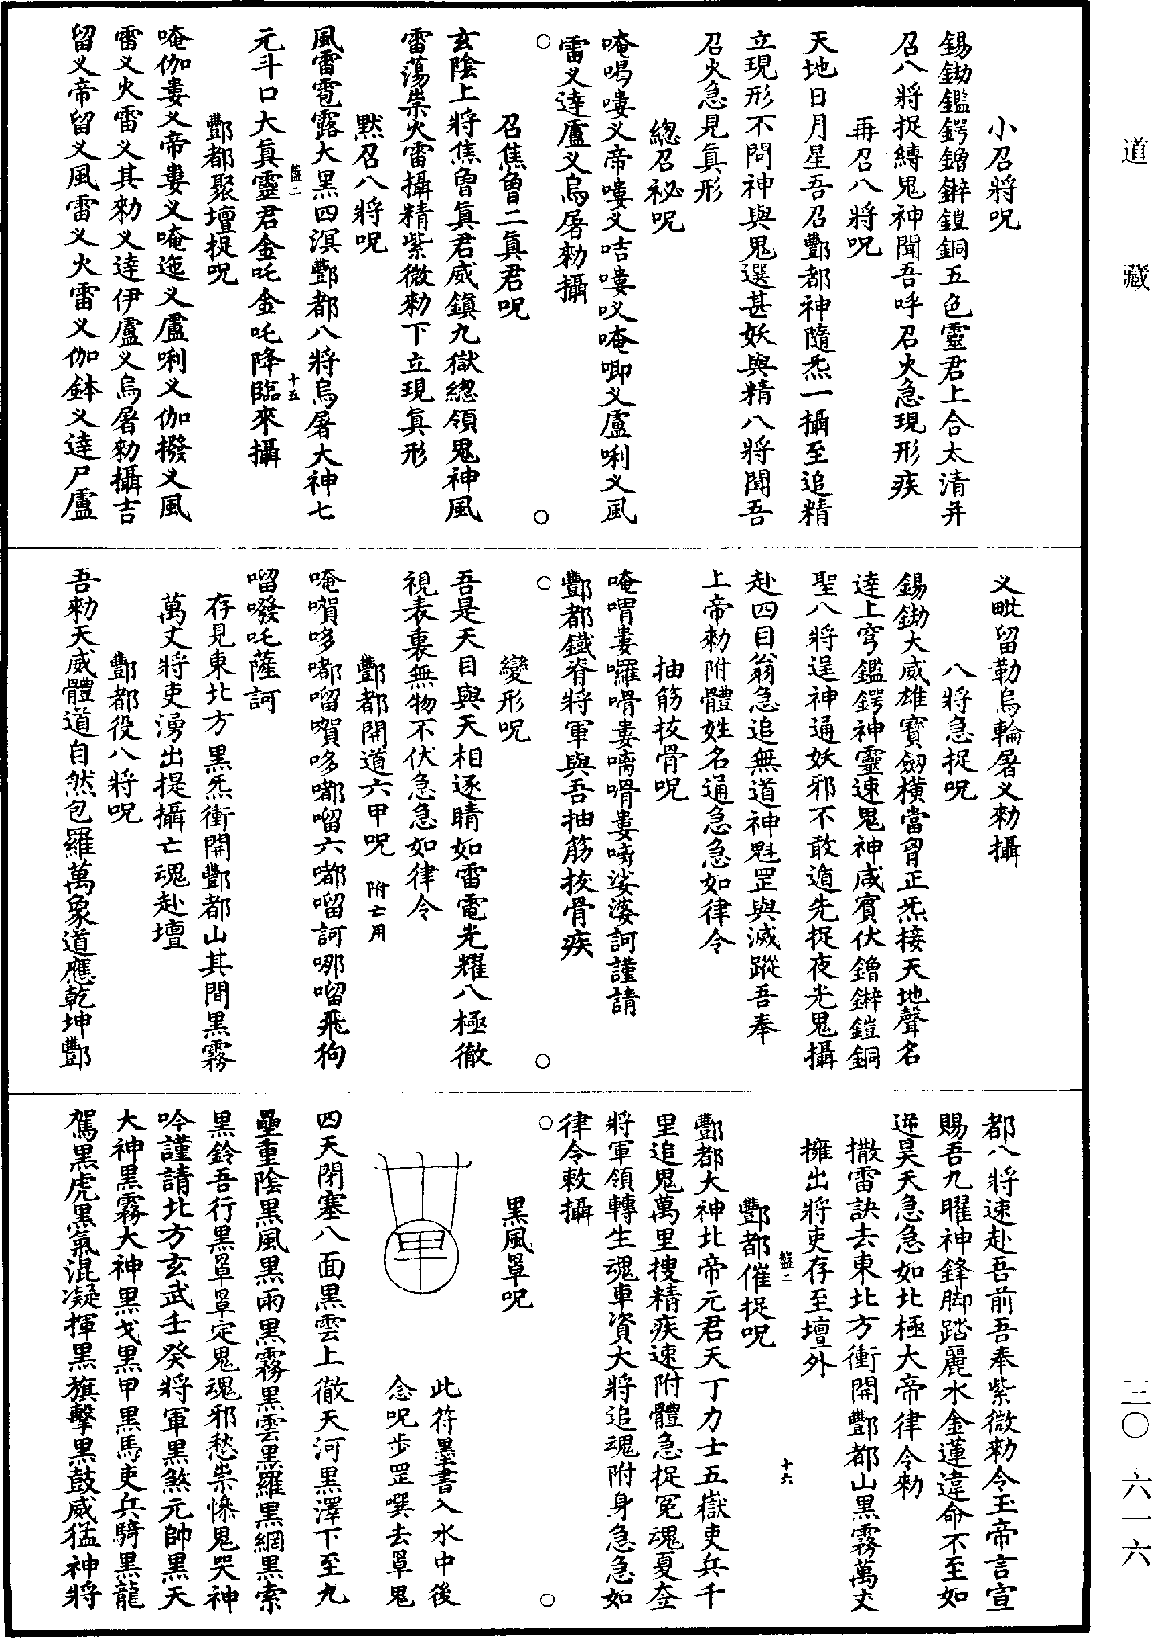 道藏
三〇‧六一六
小召將呪
錫鋤鑑鍔鐪鎨鎧銅五色靈君上合太清并
召八將捉縛鬼神聞吾呼召火急現形疾
再召八將呪
天地日月星吾召酆都神隨炁一攝至追精
立現形不問神與鬼選甚妖與精八將聞吾
召火急見真形
總召祕呪
唵喝嘍义帝嘍义咭嘍义唵唧义盧唎义風
雷义逹盧义烏屠勑攝
○
○
召焦魯二真君呪
玄陰上將焦魯真君威鎮九獄總領鬼神風
雷蕩祟火雷攝精紫微勑下立現真形
默召八將呪
風雷雹露大黑四溟酆都八將烏屠大神七
元斗口大真靈君金吒金吒降臨來攝
藍二
十五
酆都聚壇捉呪
唵伽婁义帝婁义唵迤义盧唎义伽撥义風
雷义火雷义其勑义逹伊盧义烏屠勑攝吉
留义帝留义風雷义火雷义伽鉢义逹尸盧
义毗留勒烏輪屠义勑攝
八將急捉呪
錫鋤大威雄寶劒橫當胷正炁接天地聲名
逹上穹鑑鍔神靈速鬼神咸賓伏鐪鎨鎧銅
聖八將逞神通妖邪不敢遁先捉夜光鬼攝
赴四目翁急追無道神魁罡與滅蹤吾奉
上帝勑附體姓名通急急如律令
抽筋抜骨呪
唵喟婁囉嗗婁嚙嗗婁㗿娑婆訶謹請
酆都鐵脊將軍與吾抽筋抜骨疾
○
○
變形呪
吾是天目與天相逐睛如雷電光耀八極徹
視表裏無物不伏急急如律令
酆都開道六甲呪 附亡用
唵嗊哆嘟㗰嗊哆嘟㗰六嘟㗰訶哪㗰飛狗
㗰㗶吒薩訶
存見東北方黑炁衝開酆都山其間黑霧
萬丈將吏湧出提攝亡魂赴壇
酆都役八將呪
吾勑天威體道自然包羅萬象道應乾坤酆
都八將速赴吾前吾奉紫微勑令玉帝言宣
賜吾九曜神鋒脚踏麗水金蓮違命不至如
逆昊天急急如北極大帝律令勑
撒雷訣去東北方衝開酆都山黑霧萬丈
擁出將吏存至壇外
藍二
十六
酆都催捉呪
酆都大神北帝元君天丁力士五嶽吏兵千
里追鬼萬里搜精疾速附體急捉冤魂夏奎
將軍領轉生魂車資大將追魂附身急急如
律令敕攝
○
○
黑風罩呪
車
此符墨書入水中後
念呪步罡噀去罩鬼
四天閉塞八面黑雲上徹天河黑澤下至九
壘重陰黑風黑雨黑霧黑雲黑羅黑網黑索
黑鈴吾行黑罩罩定鬼魂邪愁祟慘鬼哭神
吟謹請北方玄武壬癸將軍黑煞元帥黑天
大神黑霧大神黑戈黑甲黑馬吏兵騎黑龍
駕黑虎黑氣混凝揮黑旗擊黑鼓威猛神將